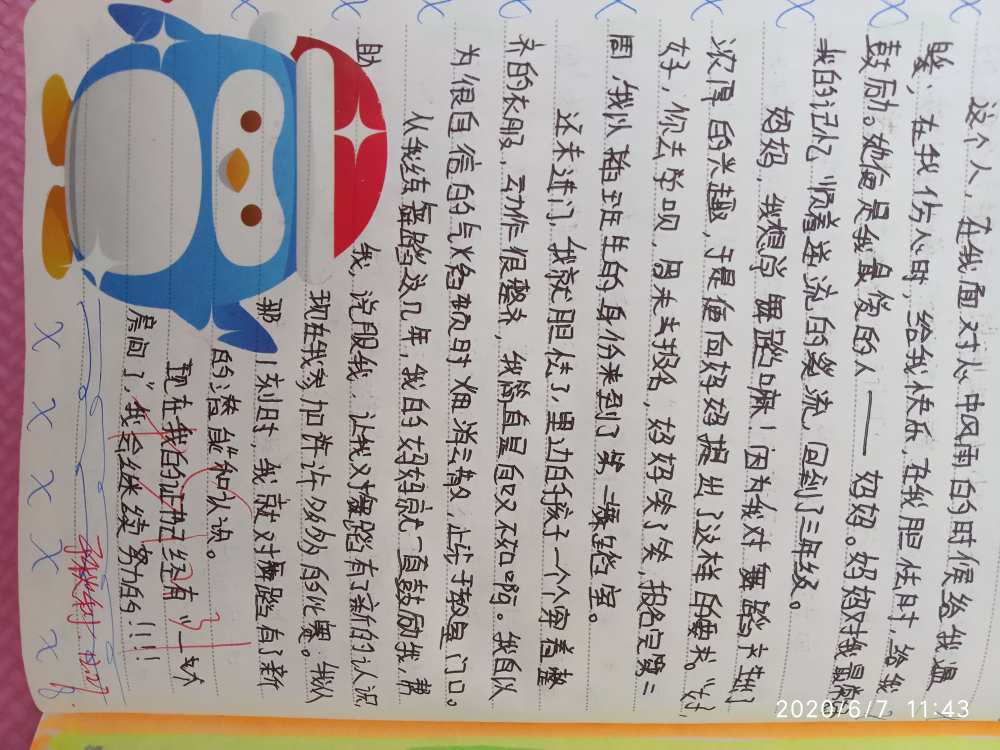 这个人，在我面对心中风雨的时候给我温
暖；在我伤心时，给我快乐，在我胆怯时，给我
鼓励。她俩是我最爱的人——妈妈。妈妈对我最深
我的记忆顺着逆流的溪流，回到了三年级。
妈妈，我想学舞蹈嘛！因为我对舞蹈产生了
浓厚的兴趣，于是便向妈妈提出了这样的要求。“好，
好，你去学呗，周末去报名，妈妈笑了笑，报名完第二
周，我以踏班生的身份来到了第一舞蹈室。
还未进门，我就胆怯了，里边的孩子一个个穿着整
齐的衣服，动作很整齐，我简直是自叹不如啊。我自以
为很自信的气火给暂时烟消云散，止步于教室门口。
从我练舞蹈这几年，我的妈妈就一直鼓励我，帮
助 钱，说段钱，让我又对舞蹈有了新的认识
现在我参加许许多多的比赛。我从
那 1刻时，我就对舞蹈有了新
的潜能和认识。
现在我的证书已经有了一大
房间了，我会继续努力的!!!
2020/6/7 11:43